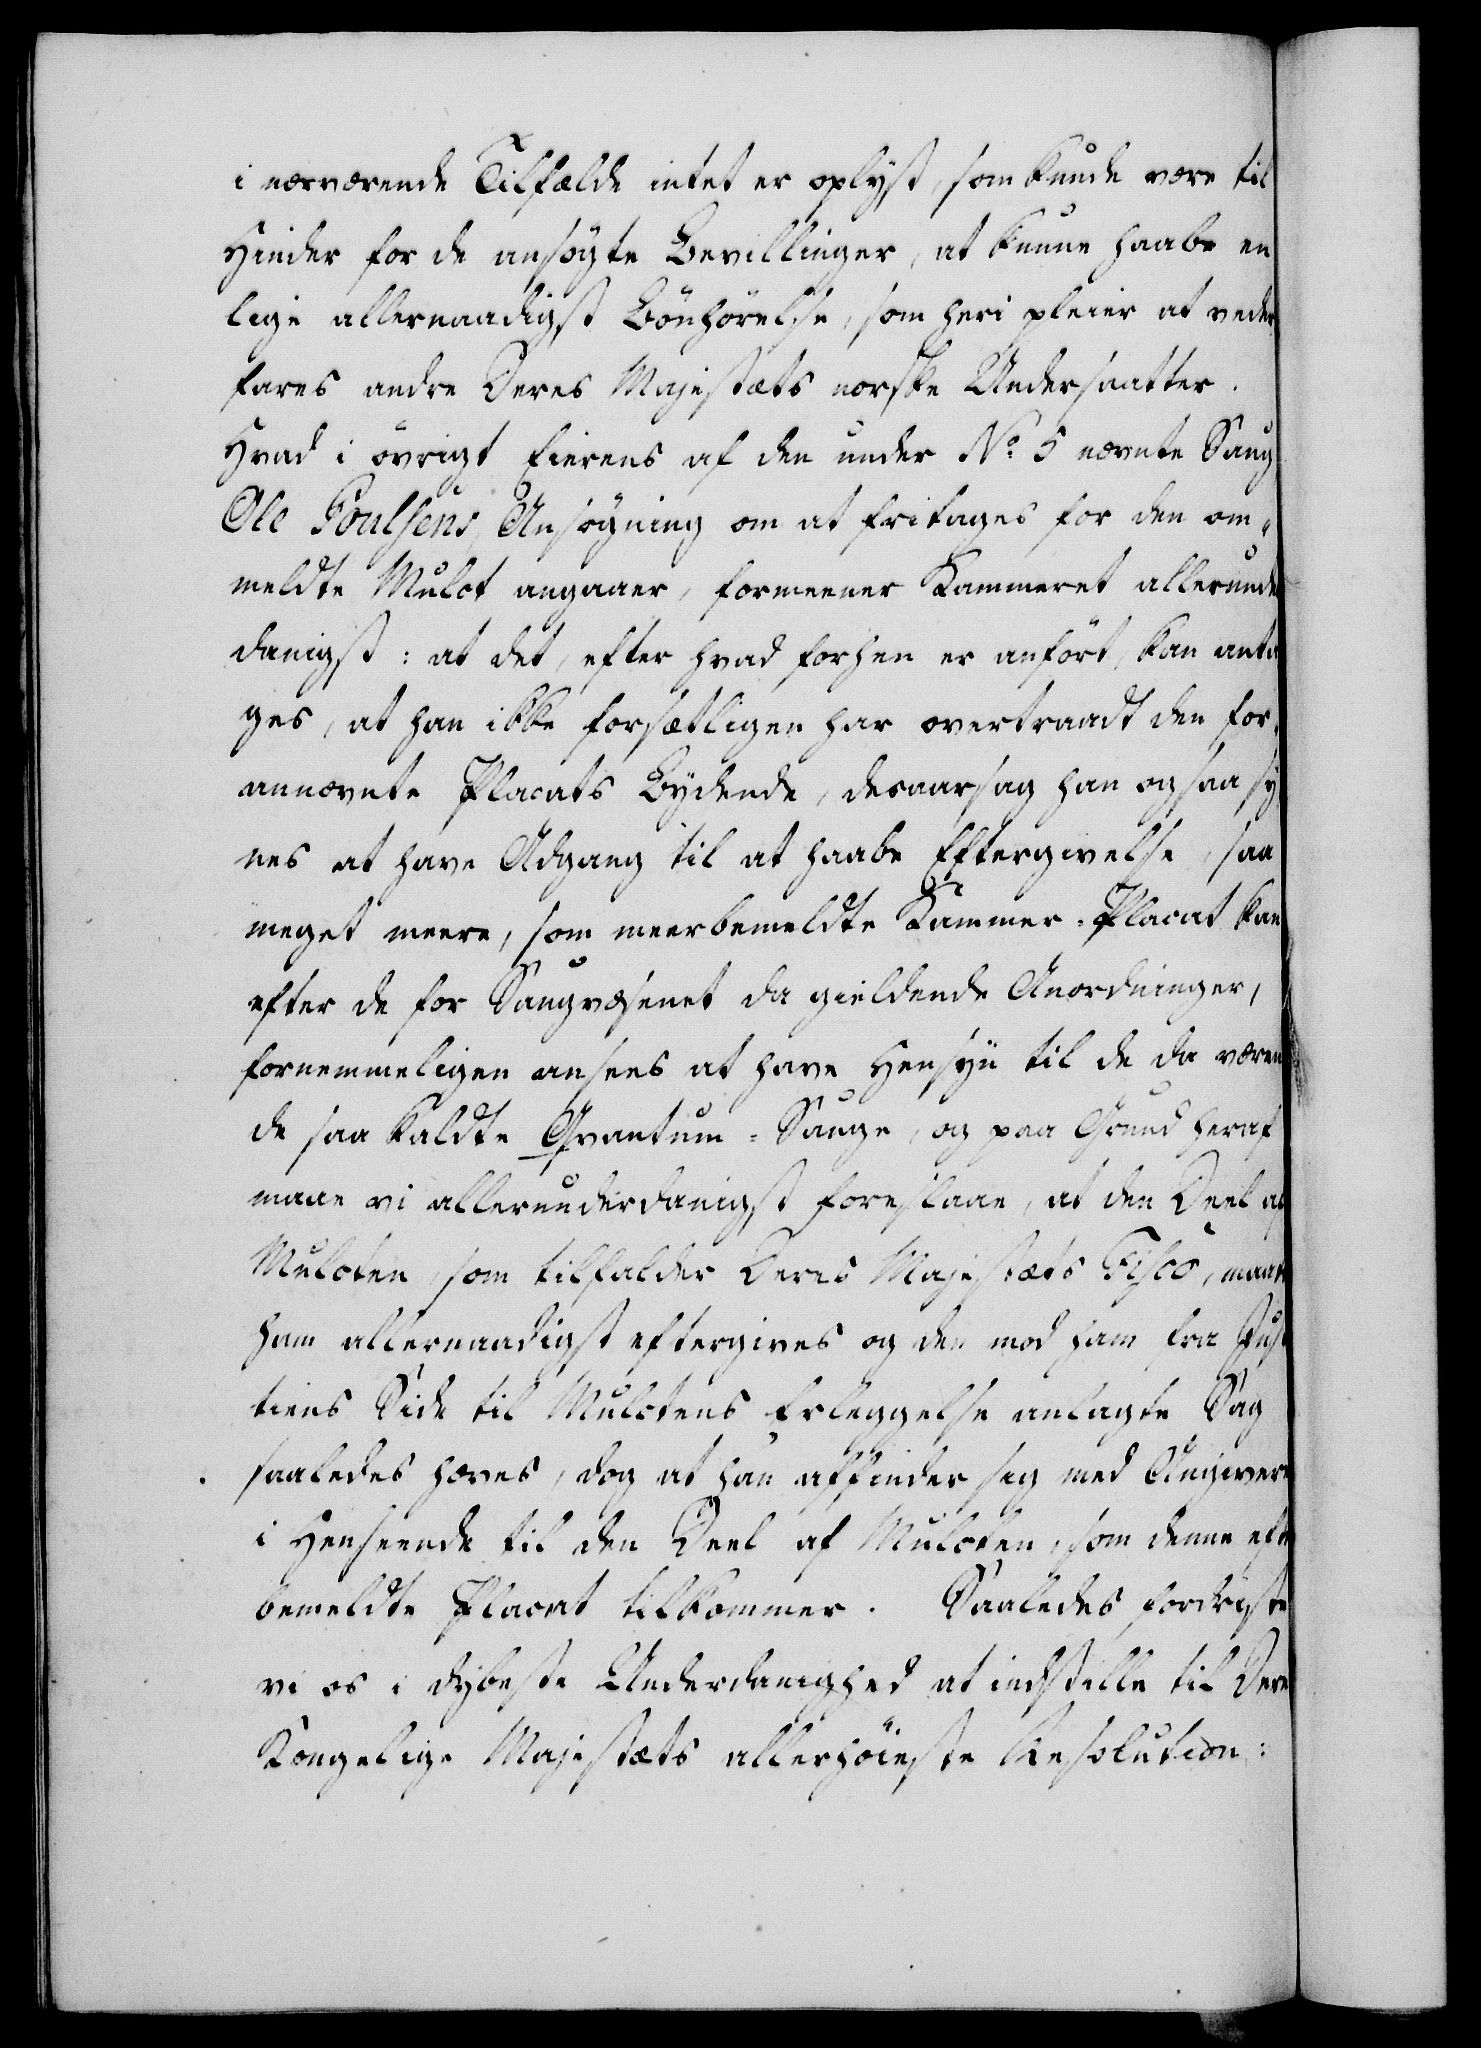 i nærværende Tilfælde intet er oplyst, som kunde være til
Hinder for de ansøgte Bevillinger, at kunne haabe en
lige allernaadigst Bönhörelse, som heri pleier at veder,
fares andre Deres Majestæts norske Undersaatter.
Hvad i övrigt Eierens af den under No 5 nævnte Saug
Ole Poulsens Ansøgning om at fritages for den om„
meldte Mulct angaaer, formeener Kammeret allerunde
danigst: at det, efter hvad forhen er anfört, kan anta
ges, at han ikke forsætligen har overtraadt den for,
annævnte Placats Bydende, desaarsag han ogsaa sy
nes at have Adgang til at haabe Eftergivelse, saa
meget meere, som meerbemeldte Kammer-Placat kan
efter de for Saugvæsenet da gieldende Anordninger,
fornemmeligen ansees at have Hensyn til de da væren
de saa kaldte Qvantum-Sauge, og paa Grund heraf
maae vi allerunderdanigst foreslaae, at den Deel af
Mulcten, som tilfalder Deres Majestæts Fisco, maae
ham allernaadigst eftergives og den mod ham fra Jus
tiens Side til Mulctens Erleggelse anlagte Sag
saaledes hæves, dog at han affinder sig med Angivere
i Henseende til den Deel af Mulcten, som denne efte
bemeldte Placat tilkommer. Saaledes fordriste
vi os i dybeste Underdanighed at indstille til Dere
Kongelige Majestæts allerhöieste Resolution: